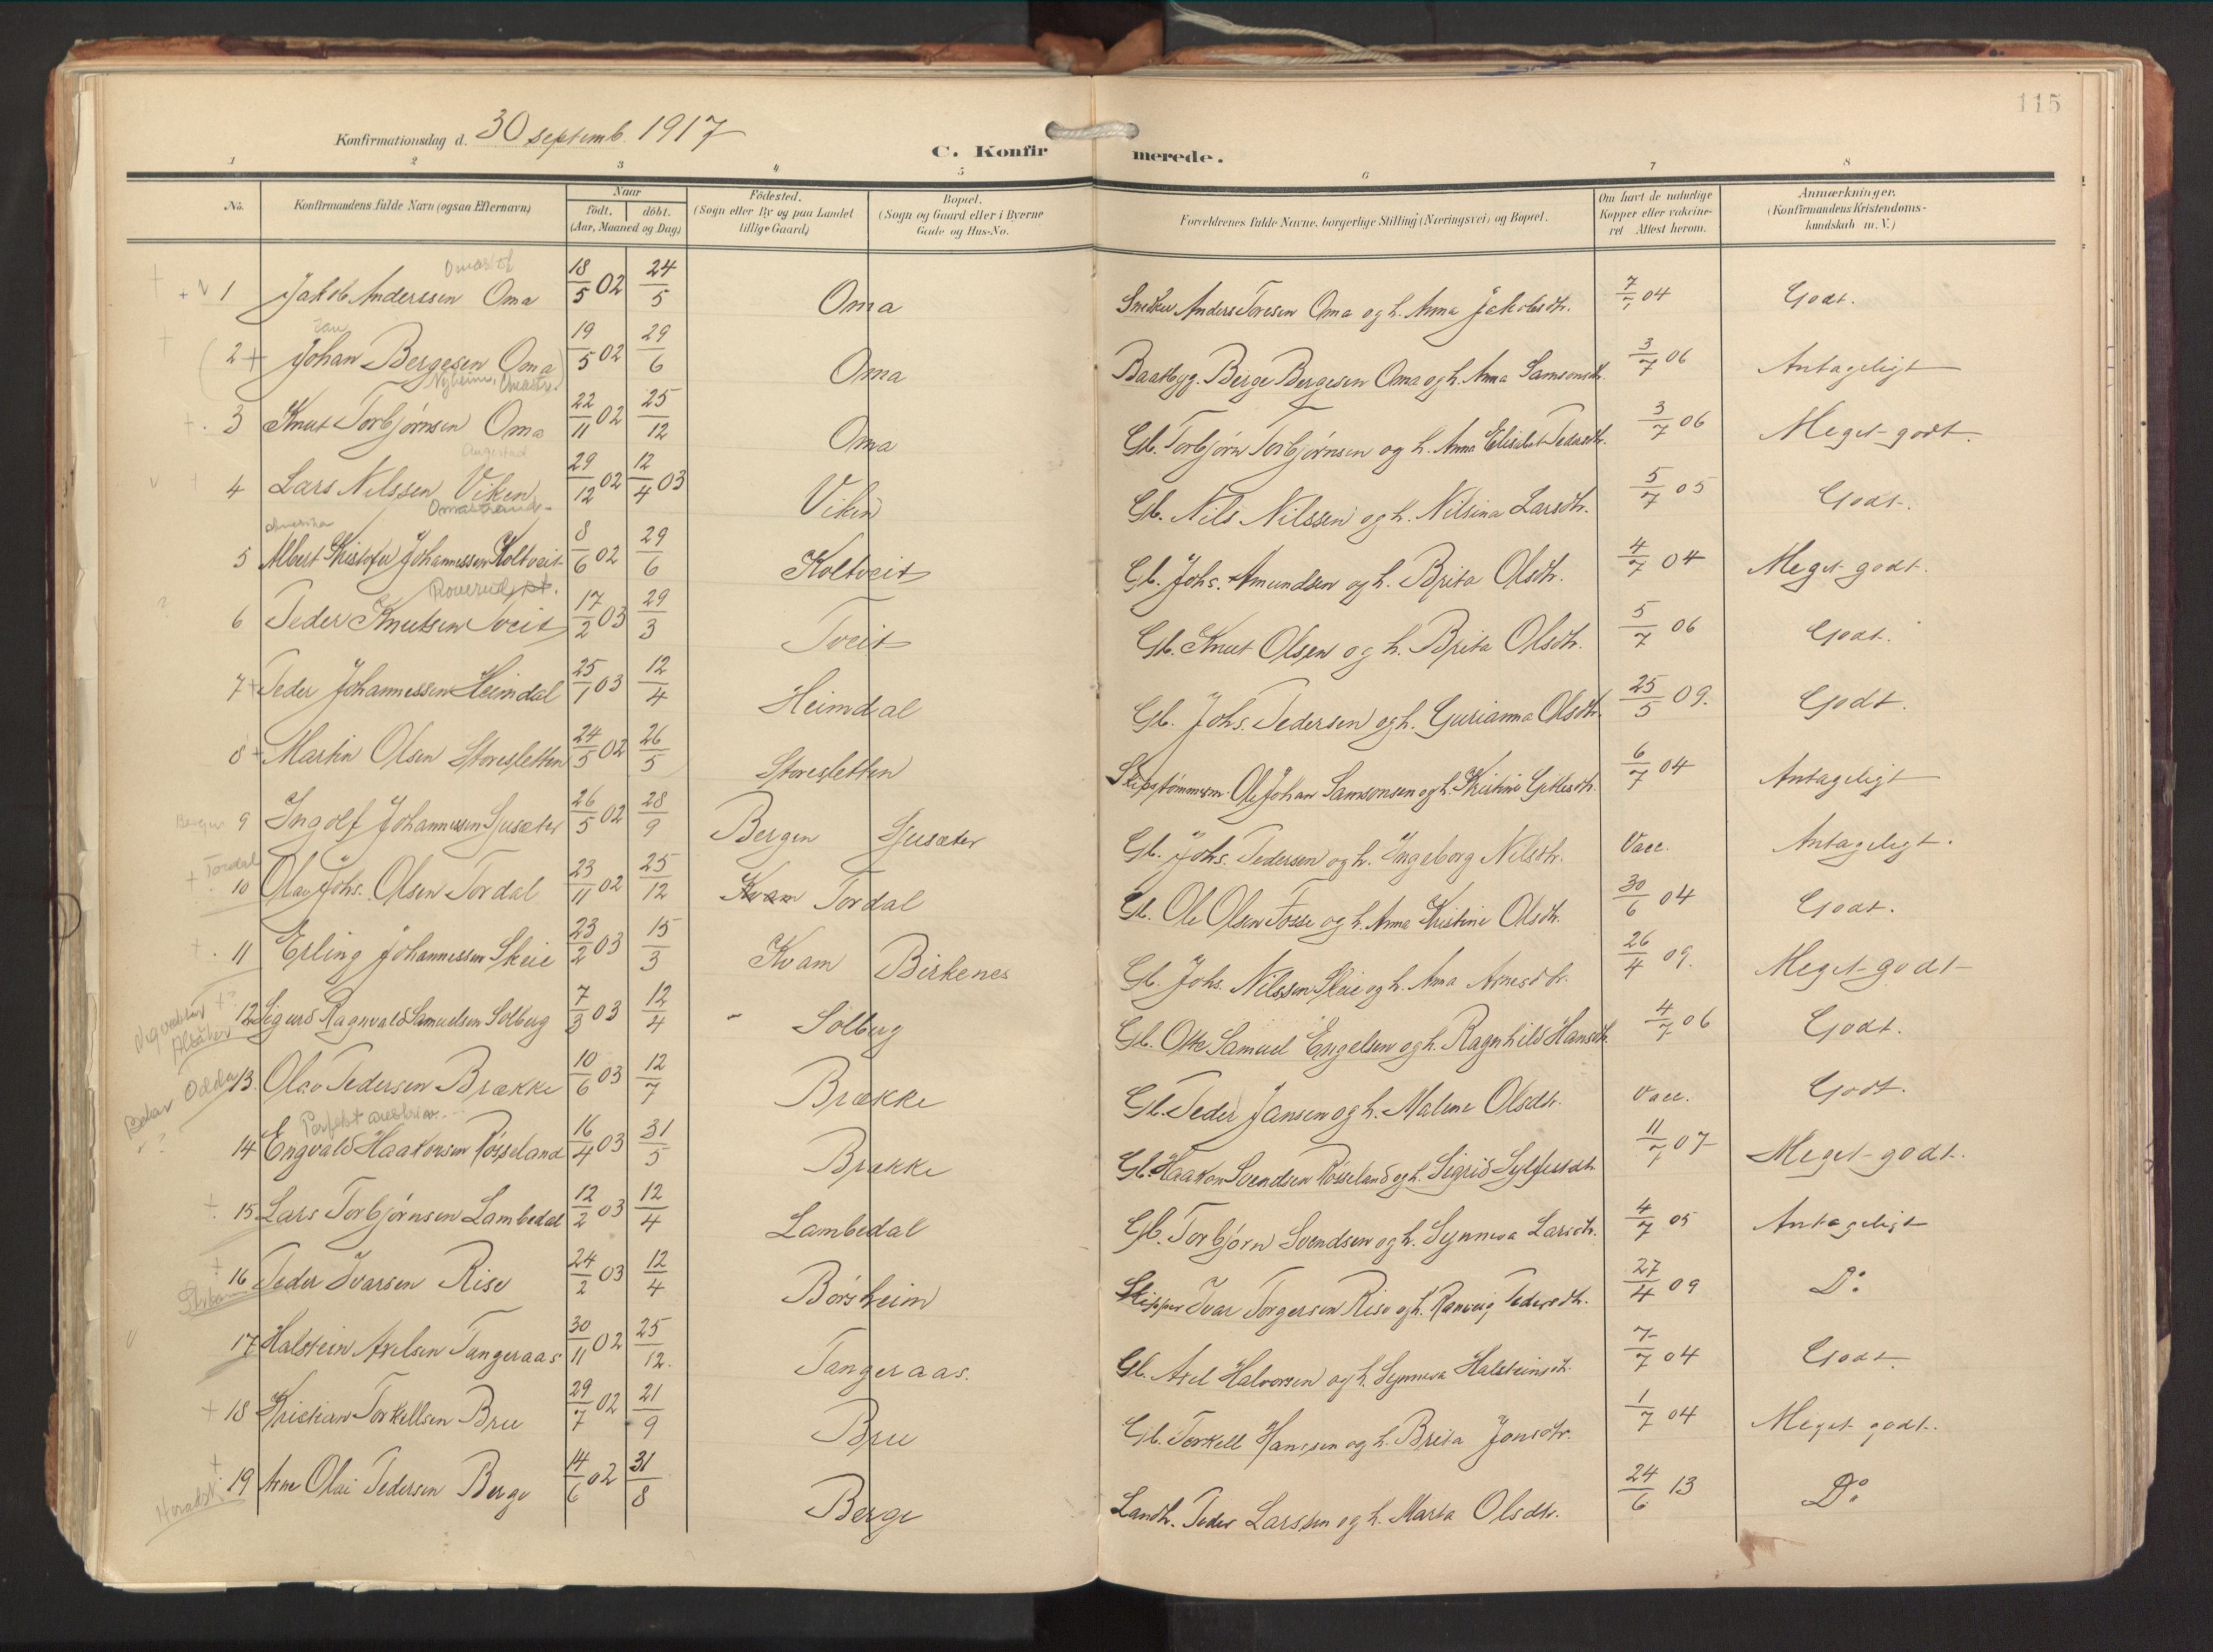 115
Konfirmationsdag d. 30 septemb. 1917
C. Konfirmerede.
1 2 3 4 5 6 7 8
No. | Konfirmandens fulde Navn (ogsaa Efternavn) | Naar født. | døbt. (Aar, Maaned og Dag) | Fødested. (Sogn eller By og paa Landet tillige Gaard) | Bopæl. (Sogn og Gaard eller i Byerne Gade og Hus-No. | Forældrenes fulde Navne, borgerlige Stilling (Næringsvei) og Bopæl. | Om havt de naturlige Kopper eller vakcineret Attest herom. | Anmærkninger. (Konfirmandens Kristendomskundskab m. V.)
1 Jakob Anderssen Oma 18/5 02 24/5 Oma Snedker Anders Toresen Oma og h. Anna Jakobsdtr. 7/7 04 Godt.
2 + Johan Bergesen Oma 19/5 02 29/6 Oma Baatbyg. Berge Bergesen Oma og h. Anna Samsonsdtr. 3/7 06 Antageligt
Nyheim, Omastr.
3 Knut Torbjørnsen Oma 22/11 02 25/12 Oma Gb. Torbjørn Torbjørnsen og h. Anna Elisabet Pedersdtr. 3/7 06 Meget godt.
4 Lars Nilssen Viken 29/12 02 12/4 03 Viken Gb. Nils Nilssen og h. Nilsina Larsdtr. 5/7 05 Godt.
Omastrand
Amerika
5 Albert Kristofer Johannessen Koltveit 8/6 02 29/6 Koltveit Gb. Johs. Amundsen og h. Brita Olsdtr. 4/7 04 Meget godt.
6 Peder Knutsen Tveit 17/2 03 29/3 Tveit Gb. Knut Olsen og h. Brita Olsdtr. 5/7 06 Godt.
7 + Peder Johannessen Heimdal 25/1 03 12/4 Heimdal Gb. Johs. Pedersen og h. Gurianna Olsdtr. 25/5 09. Godt.
8 + Martin Olsen Storesletten 24/5 02 26/5 Storesletten Skipstømmerm. Ole Johan Samsonsen og h. Kristine Gitlesdtr. 6/7 04 Antageligt
Bergen 9 Ingolf Johannessen Ljusæter 26/5 02 28/9 Bergen Ljusæter Gb. Johs. Pedersen og h. Ingeborg Nilsdtr. Vacc. Antageligt.
+ Tordal
10 Olav Johs. Olsen Tordal 23/11 02 25/12 Kvam Tordal Gb. Ole Olsen Fosse og h. Anna Kristine Olsdtr. 30/6 04 Godt.
11 Erling Johannessen Skeie 23/2 03 15/3 Kvam Birkenes Gb. Johs. Nilssen Skeie og h. Anna Arnesdtr. 26/4 09. Meget godt
12 Sigurd Ragnvald Samuelsen Solberg 7/3 03 12/4 " Solberg Gb. Otte Samuel Engelsen og h. Ragnhild Hansdtr. 4/7 06 Godt.
Odda 13. Olav Pedersen Brække 10/6 03 12/7 Brække Gb. Peder Jansen og h. Malene Olsdtr. Vacc. Godt.
14 Engvald Haakonsen Røsseland 16/4 03 31/5 Brække Gb. Haakon Svendsen Røsseland og h. Sigrid Sylfestdtr. 11/7 07 Meget godt.
15 Lars Torbjørnsen Lambedal 12/2 03 12/4 Lambedal Gb. Torbjørn Svendsen og h. Synneva Larsdtr. 4/7 05 Antageligt
16 Peder Ivarsen Rise 24/2 03 12/4 Børsheim Skipper Ivar Torgersen Rise og h. Ranveig Pedersdtr. 27/4 09 Do
17 Halstein Axelsen Tangeraas 30/11 02 25/12. Tangeraas. Gb. Axel Halvorsen og h. Synneva Halsteinsdtr. 7/7 04 Godt.
+ 18 Kristian Torkellsen Bru 29/7 02 21/9 Bru Gb. Torkell Hanssen og h. Brita Jonsdtr. 1/7 04 Meget godt.
+
19 Arne Olai Pedersen Berge 14/6 02 31/8 Berge Landh. Peder Larssen og h. Marta Olsdtr. 24/6 13 Do